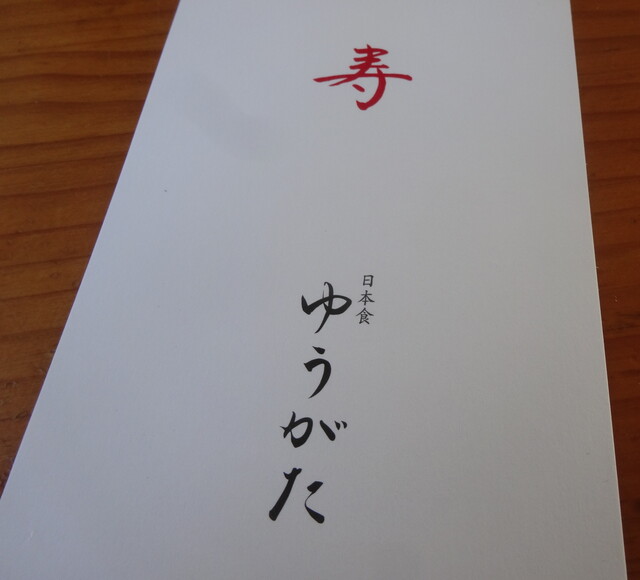 寿
日本食
ゆうがた